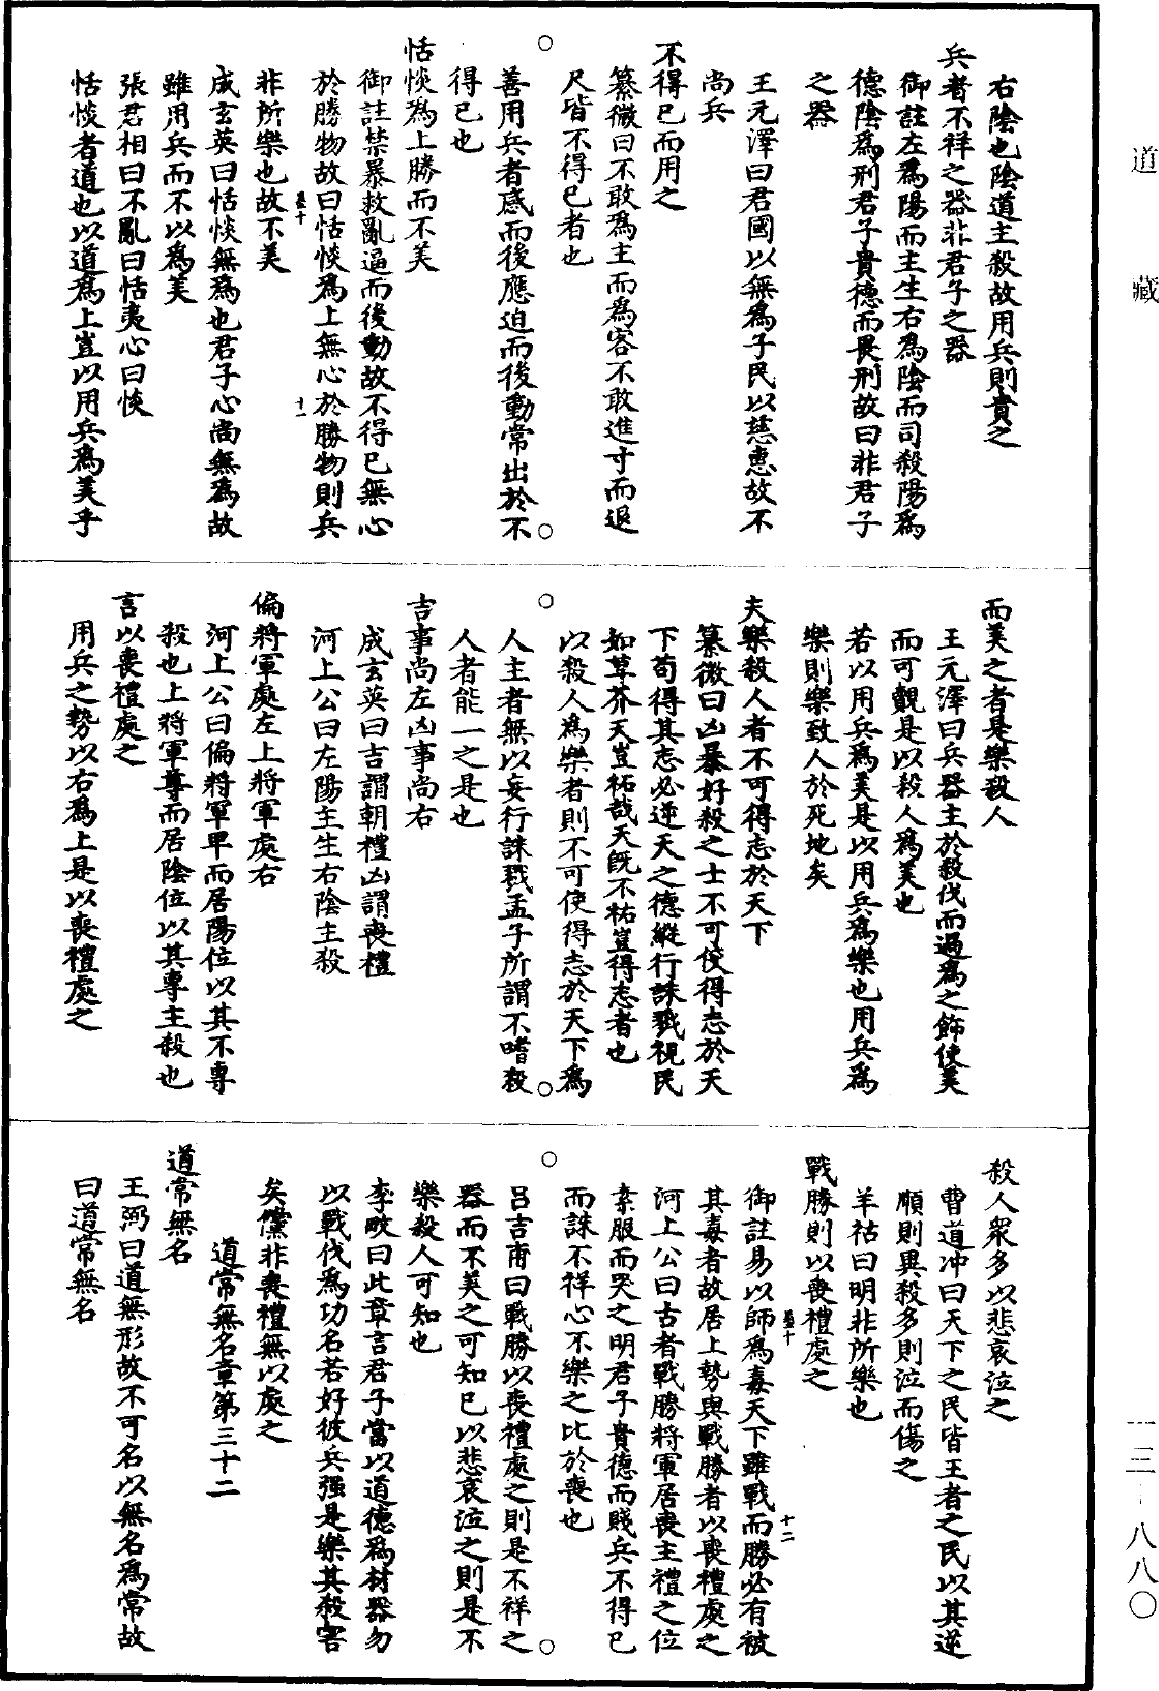 道藏
右陰也陰道主殺故用兵則貴之
兵者不祥之器非君子之器
御註左爲陽而主生右爲陰而司殺陽爲
德陰爲刑君子貴德而畏刑故曰非君子
之器
王元澤曰君國以無爲子民以慈惠故不
尚兵
不得已而用之
纂微曰不敢爲主而爲客不敢進寸而退
尺皆不得已者也
善用兵者感而後應迫而後動常出於不
得已也
恬惔爲上勝而不美
御註禁暴救亂逼而後動故不得已無心
於勝物故曰恬惔爲上無心於勝物則兵
十一
非所樂也故不美
成玄英曰恬惔無爲也君子心尚無爲故
雖用兵而不以爲美
張君相曰不亂曰恬夷心曰惔
恬惔者道也以道爲上豈以用兵爲美乎
而美之者是樂殺人
王元澤曰兵器主於殺伐而過爲之飾使美
而可觀是以殺人爲美也
若以用兵爲美是以用兵爲樂也用兵爲
樂則樂致人於死地矣
夫樂殺人者不可得志於天下
纂微曰凶暴好殺之士不可使得志於天
下苟得其志必逆天之德縱行誅戮視民
如草芥天豈祐哉天既不祐豈得志者也
以殺人爲樂者則不可使得志於天下爲
人主者無以妄行誅戮孟子所謂不嗜殺
人者能一之是也
吉事尚左凶事尚右
成玄英曰吉謂朝禮凶謂喪禮
河上公曰左陽主生右陰主殺
偏將軍處左上將軍處右
河上公曰偏將軍卑而居陽位以其不專
殺也上將軍尊而居陰位以其專主殺也
言以喪禮處之
用兵之勢以右爲上是以喪禮處之
殺人衆多以悲哀泣之
曹道冲曰天下之民皆王者之民以其逆
順則異殺多則泣而傷之
羊祜曰明非所樂也
戰勝則以喪禮處之
十二
御註易以師爲毒天下雖戰而勝必有被
其毒者故居上勢與戰勝者以喪禮處之
河上公曰古者戰勝將軍居喪主禮之位
素服而哭之明君子貴德而賤兵不得已
而誅不祥心不樂之比於喪也
呂吉甫曰戰勝以喪禮處之則是不祥之
器而不美之可知已以悲哀泣之則是不
樂殺人可知也
李畋曰此章言君子當以道德爲材器勿
以戰伐爲功名若好彼兵强是樂其殺害
矣儻非喪禮無以處之
道常無名章第三十二
道常無名
王弼曰道無形故不可名以無名爲常故
曰道常無名
一三-八八〇